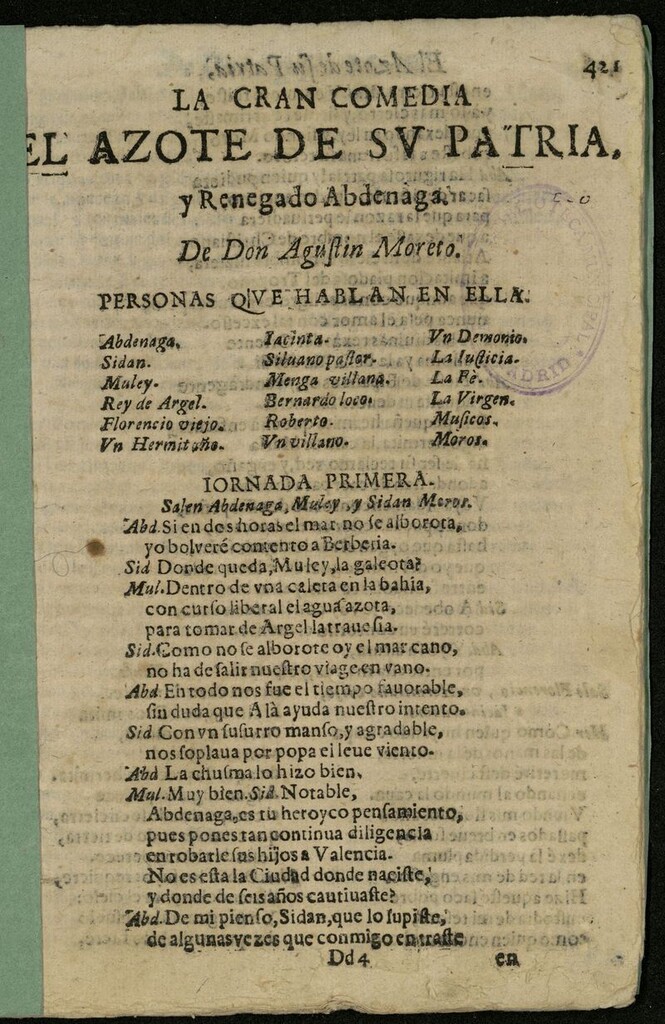 421
LA CRAN COMEDIA
EL AZOTE DE SV PATRIA,
y Renegado Abdenaga.
De Don Agustin Moreto.
PERSONAS QVE HABLAN EN ELLA.
Abdenaga. Iacinta. Vn Demonio.
Sidan. Siluano pastor. La Iusticia.
Muley. Menga villana. La Fè.
Rey de Argel. Bernardo loco. La Virgen.
Florencio viejo. Roberto. Musicos.
Vn Hermitaño. Vn villano. Moros.
IORNADA PRIMERA.
Salen Abdenaga, Muley, y Sidan Moros.
Abd. Si en dos horas el mar no se alborota,
yo bolveré contento a Berberia.
Sid Donde queda, Muley, la galeota?
Mul. Dentro de vna caleta en la bahia,
con curso liberal el agua azota,
para tomar de Argel la trauesia.
Sid. Como no se alborote oy el mar cano,
no ha de salir nuestro viage en vano.
Abd En todo nos fue el tiempo fauorable,
sin duda que Alà ayuda nuestro intento.
Sid Con vn susurro manso, y agradable,
nos soplaua por popa el leue viento.
Abd La chusma lo hizo bien,
Mul. Muy bien. Sid. Notable,
Abdenaga, es tu heroyco pensamiento,
pues pones tan continua diligencia
en robarle sus hijos a Valencia.
No es esta la Ciudad donde naciste,
y donde de seis años cautiuaste?
Abd. De mi pienso, Sidan, que lo supiste,
de algunas vezes que conmigo entraste
Dd 4 en
MADRID